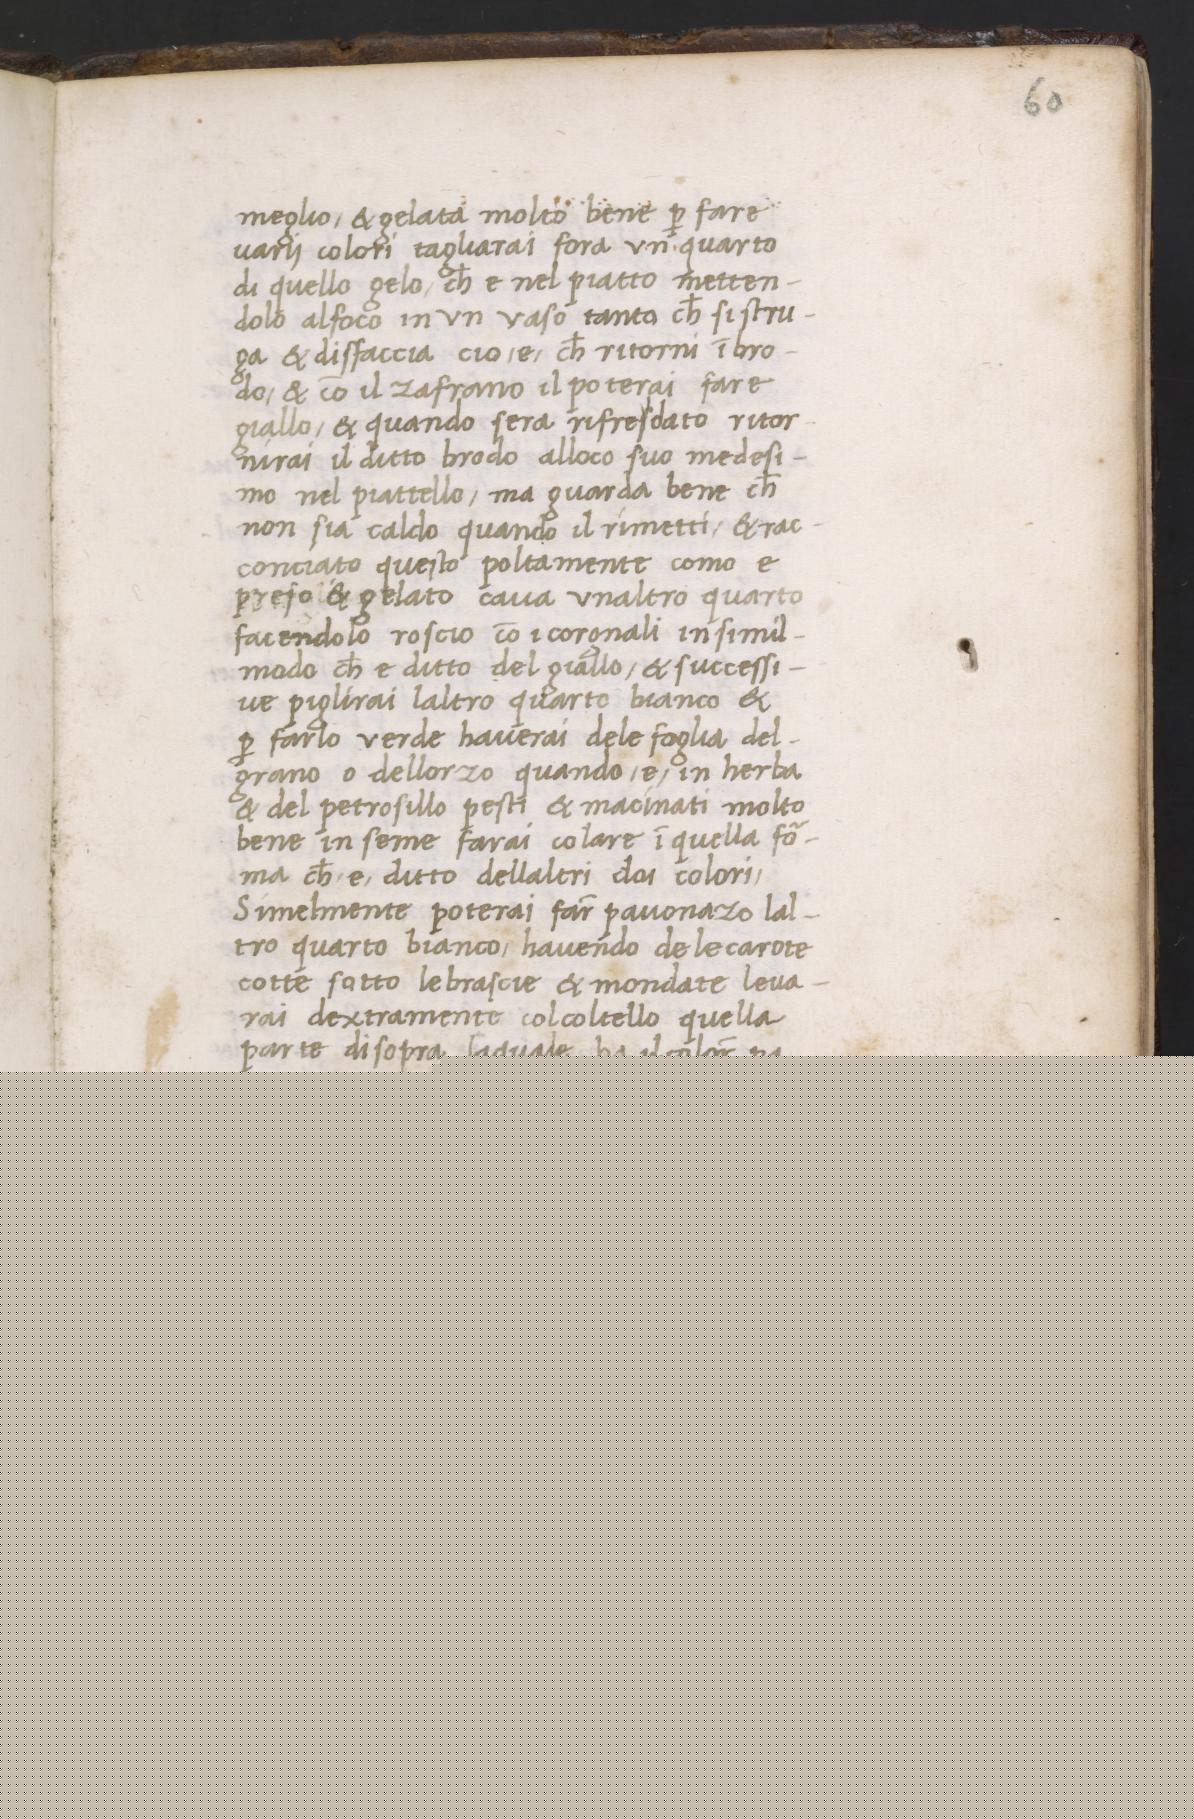 60
meglio, & gelata molto bene p̱ fare
uarij colori tagliarai fora vn quarto
di quello gelo, ch̄ e nel piatto metten-
dolo alfoco in vn vaso tanto ch̄ si stru-
ga & disfaccia cio, e, ch̄ ritorni ī bro-
do, & cō il zafrano il poterai fare
giallo, & quando sera rifresdato ritor-
nirai il ditto brodo alloco suo medesi-
mo nel piattello, ma guarda bene ch̄
non sia caldo quando il rimetti, & rac-
conciato questo poltamente como e
preso & gelato caua vnaltro quarto
facendolo roscio cō i corgnali in simil-
modo ch̄ e ditto del giallo, & successi-
ue piglirai laltro quarto bianco &
p̱ farlo verde hauerai dele foglia del-
grano o dellorzo quando, e, in herba
& del petrosillo pesti & macinati molto
bene in seme farai colare ī quella fō-
ma ch̄, e, ditto dellaltri doi colori,
Simelmente poterai far̄ pauonazo lal-
tro quarto bianco, hauendo de le carote
cotte sotto le brascie & mondate leua-
rai dextramente col coltello quella
parte di sopra laquale ha il color̄ pa